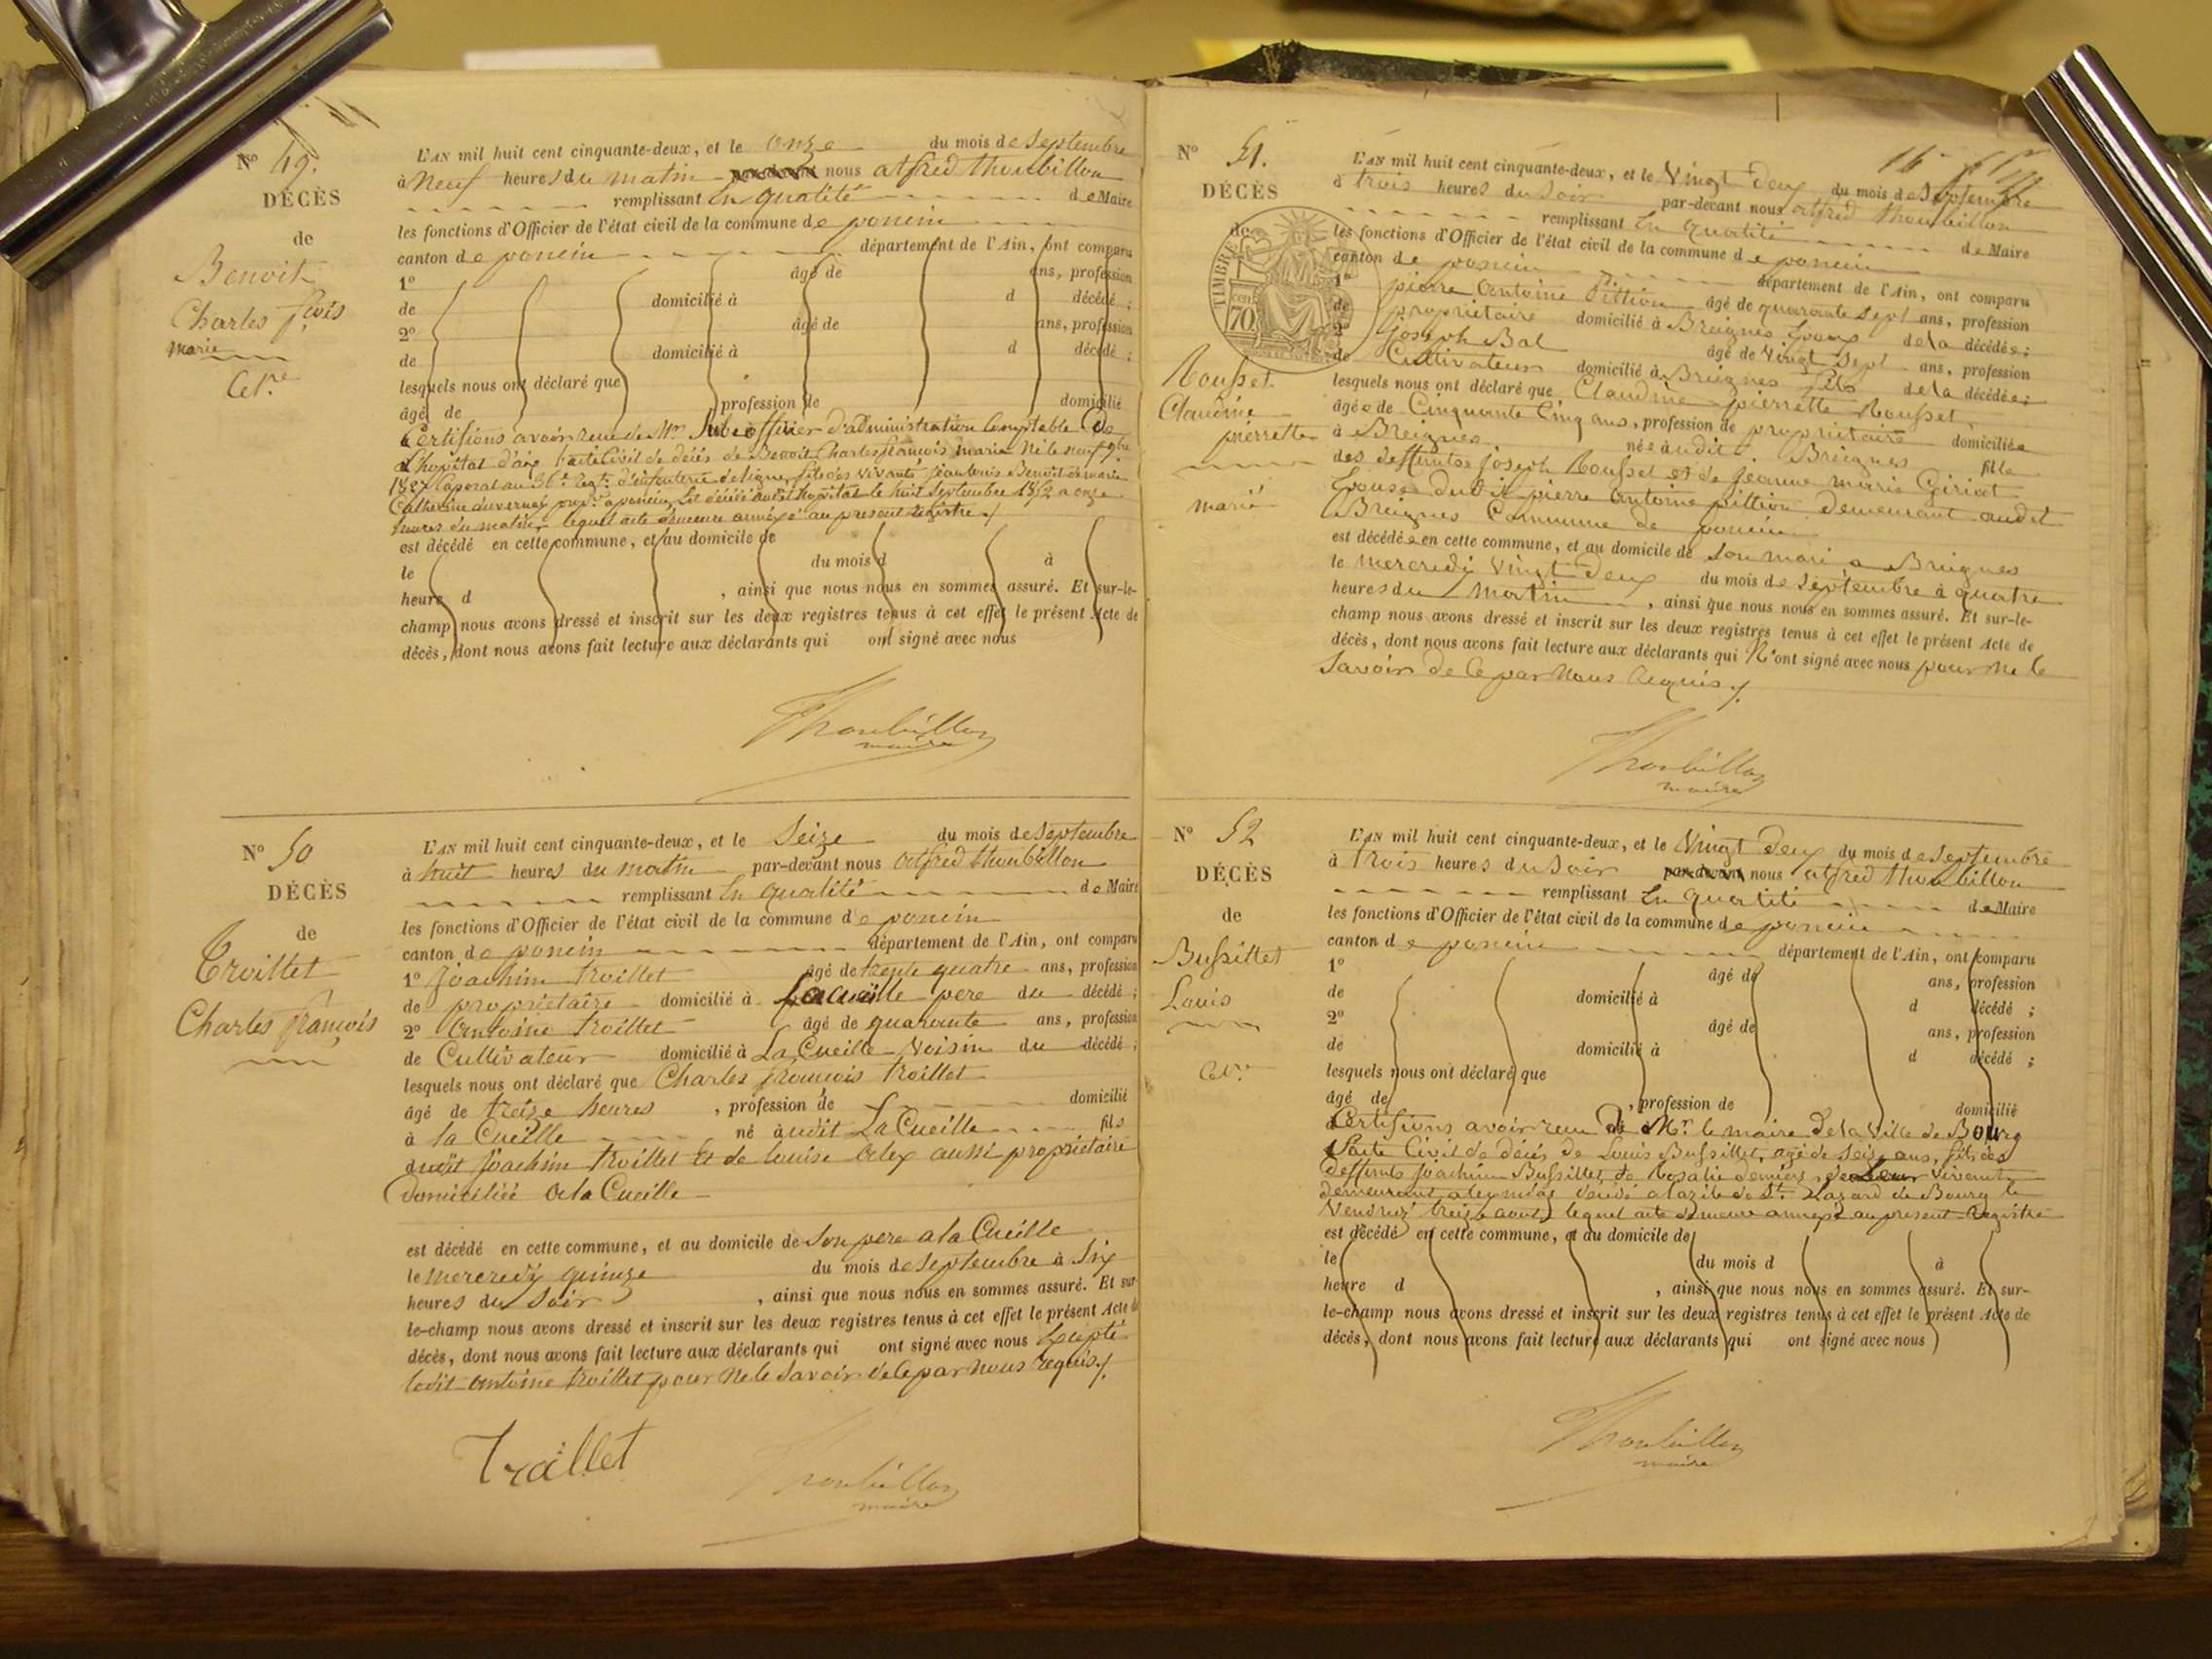 N° 49.
DÉCÈS
de
Benoit
Charles fçois
marie
Cel.re
L'AN mil huit cent cinquante-deux, et le onze du mois de Septembre
à Neuf heures du matin par-devant nous alfred thoubillon
remplissant En qualité de Maire
les fonctions d'Officier de l'état civil de la commune de poncin
canton de poncin département de l'Ain, ont comparu
1° âgé de ans, profession
de domicilié à d décédé ;
2° âgé de ans, profession
de domicilié à d décédé ;
lesquels nous ont déclaré que
âgé de profession de domicilié
Certifions avoir recu de Mr officier d'administration Comptable de
L'hopital d'aix l'acte Civil de décès de Benoit Charles françois marie Né le neuf 9bre
1827 Caporal au 36e Regt. d'infanterie de ligne, fils des vivants jean louis Benoit et marie
Catherine duvernay propre. a poncin, Est décédé audit hopital le huit Septembre 1852 a onze
heures du matin, lequel acte demeure annéxé au present registre ./
est décédé en cette commune, et au domicile de
le du mois d à
heure d , ainsi que nous nous en sommes assuré. Et sur-le-
champ nous avons dressé et inscrit sur les deux registres tenus à cet effet le présent Acte de
décès, dont nous avons fait lecture aux déclarants qui ont signé avec nous
Thoubillon
maire
N° 50
DÉCÈS
de
Troillet
Charles françois
L'AN mil huit cent cinquante-deux, et le Seize du mois de Septembre
à huit heures du matin par-devant nous alfred thoubillon
remplissant En qualité de Maire
les fonctions d'Officier de l'état civil de la commune de poncin
canton de poncin département de l'Ain, ont comparu
1° Joachim troillet âgé de trente quatre ans, profession
de propriétaire domicilié à La Cueille pere du décédé ;
2° Antoine troillet âgé de quarante ans, profession
de Cultivateur domicilié à La Cueille Voisin du décédé ;
lesquels nous ont déclaré que Charles françois troillet
âgé de treize heures , profession de domicilié
à la Cueille né audit La Cueille fils
dudit Joachim troillet Et de louise aussi propriétaire
Domiciliée a la Cueille
est décédé en cette commune, et au domicile de Son pere a la Cueille
le mercredi quinze du mois de Septembre à Six
heures du Soir , ainsi que nous nous en sommes assuré. Et sur-
le-champ nous avons dressé et inscrit sur les deux registres tenus à cet effet le présent Acte de
décès, dont nous avons fait lecture aux déclarants qui ont signé avec nous Excepté
ledit Antoine troillet pour ne le Savoir de Ce par Nous requis ./
Troillet
Thoubillon
maire
N° 51.
DÉCÈS
de
TIMBRE
70
Rousset
Claudine
pierrette
marié
L'AN mil huit cent cinquante-deux, et le Vingt Deux du mois de Septembre
à trois heures du Soir par-devant nous alfred thoubillon
remplissant En qualité de Maire
les fonctions d'Officier de l'état civil de la commune de poncin
canton de poncin département de l'Ain, ont comparu
1° pierre Antoine Pittion âgé de quarante Sept ans, profession
de propriétaire domicilié à Breignes Epoux de la décédée ;
2° Joseph Bal âgé de Vingt Sept ans, profession
de Cultivateur domicilié à Breignes fils de la décédée ;
lesquels nous ont déclaré que Claudine pierrette Rousset
âgée de Cinquante Cinq ans, profession de propriétaire domiciliée
à Breignes, née audit Breignes fille
des deffuntes Joseph Rousset et de Jeanne marie Giriat
Epouse dudit pierre Antoine pittion Demeurant audit
Breignes Commune de poncin
est décédée en cette commune, et au domicile de Son mari a Breignes
le mercredi Vingt Deux du mois de Septembre à quatre
heures du matin , ainsi que nous nous en sommes assuré. Et sur-le-
champ nous avons dressé et inscrit sur les deux registres tenus à cet effet le présent Acte de
décès, dont nous avons fait lecture aux déclarants qui N'ont signé avec nous pour ne le
Savoir de Ce par Nous Requis ./
Thoubillon
maire
N° 52
DÉCÈS
de
Bussillet
Louis
L'AN mil huit cent cinquante-deux, et le Vingt Deux du mois de Septembre
à trois heures du Soir par-devant nous alfred thoubillon
remplissant En qualité de Maire
les fonctions d'Officier de l'état civil de la commune de poncin
canton de poncin département de l'Ain, ont comparu
1° âgé de ans, profession
de domicilié à d décédé ;
2° âgé de ans, profession
de domicilié à d décédé ;
lesquels nous ont déclaré que
âgé de , profession de domicilié
Certifions avoir recu de Mr. le maire de la Ville de Bourg
l'acte Civil de décès de Louis Bussillet, agé de Seize ans, fils des
deffunts Joachim Bussillet, de Rosalie de Leur Vivants
demeurant a décédé a lazile de St. Lazard de Bourg le
Vendredi treize aout, lequel acte demeure annexé au present Registre
est décédé en cette commune, et au domicile de
le du mois d à
heure d , ainsi que nous nous en sommes assuré. Et sur-
le-champ nous avons dressé et inscrit sur les deux registres tenus à cet effet le présent Acte de
décès, dont nous avons fait lecture aux déclarants qui ont signé avec nous
Thoubillon
maire